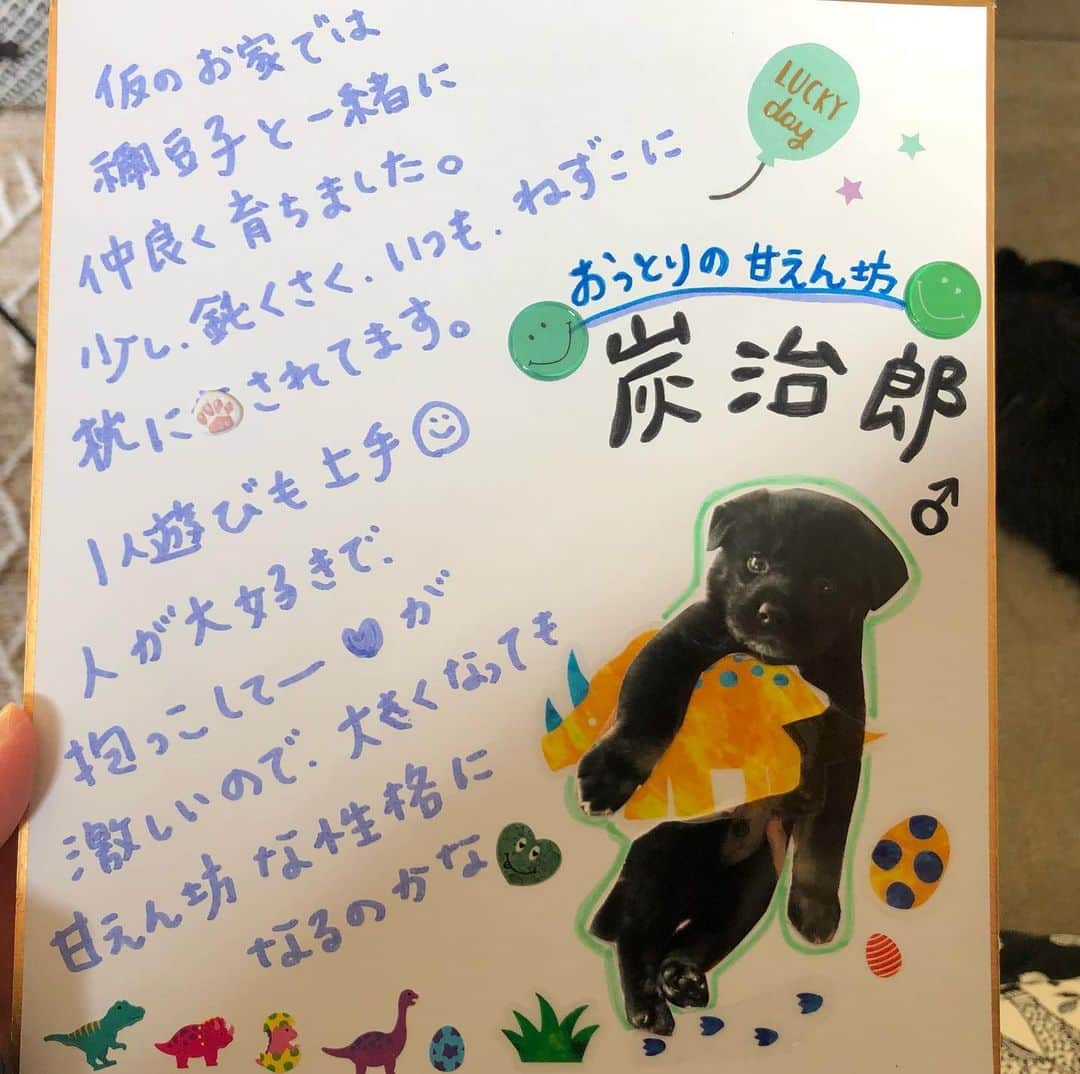 仮のお家では
禰豆子と一緒に
仲良く育ちました。
少し、鈍くさく、いつも、ねずこに
枕にされてます。
1人遊びも上手
人が大好きで、
抱っこしてー♥が
激しいので、大きくなっても
甘えん坊な性格に
なるのかな
LUCKY
day
おっとりの甘えん坊
炭治郎
♂